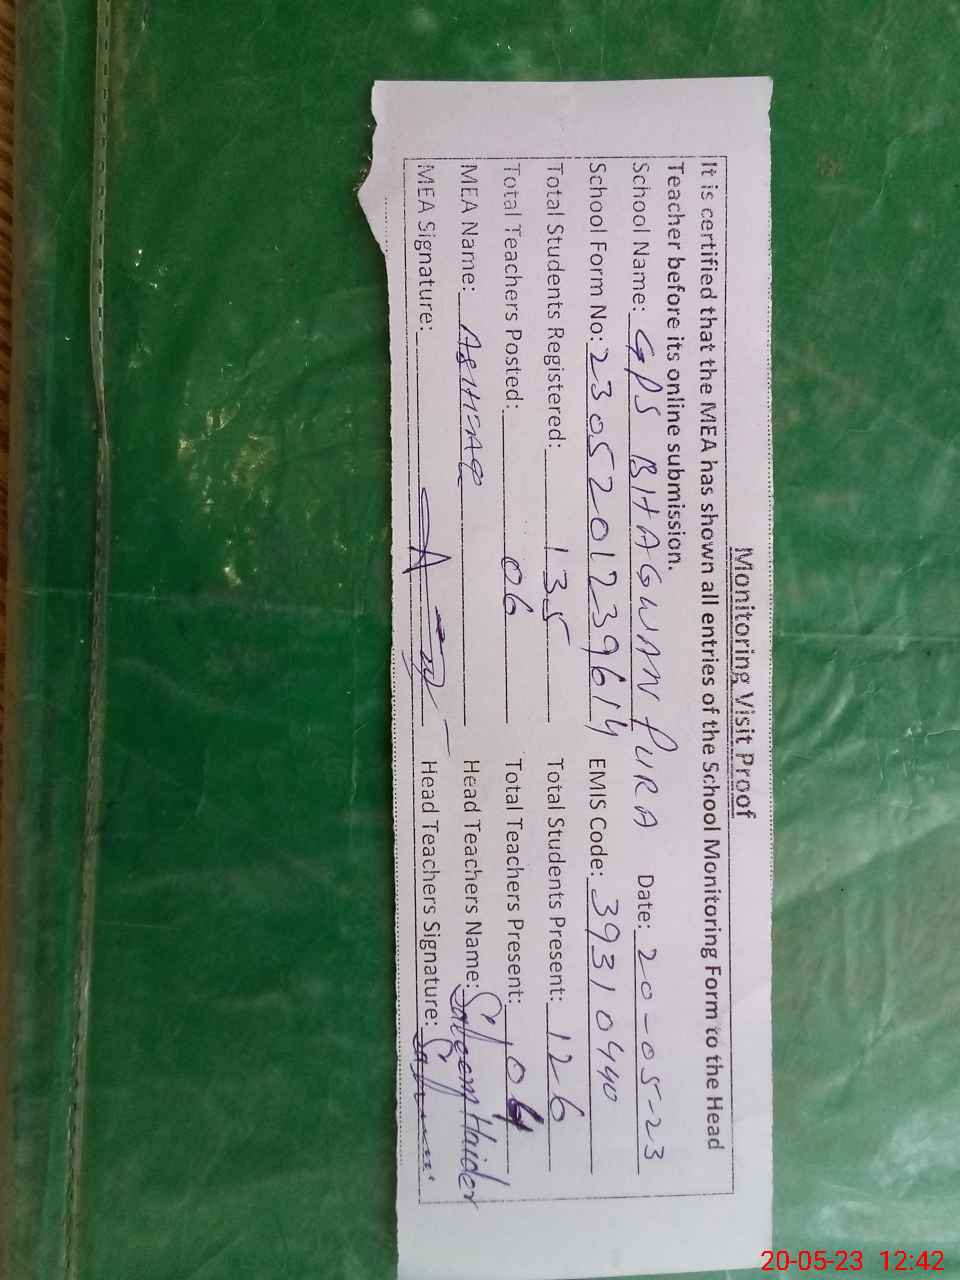 Monitoring Visit Proof
It is certified that the MEA has shown all entries of the School Monitoring Form to the Head
Teacher before its online submission.
School Name: GPS BHAGWAN PURA Date: 20-05-23
School Form No: 23052012239614 EMIS Code: 39310440
Total Students Registered: 135 Total Students Present: 126
Total Teachers Posted: 06 Total Teachers Present:
MEA Name: ASHFAQ Head Teachers Name: Saleem Haider
MEA Signature: Head Teachers Signature:
20-05-23 12:42